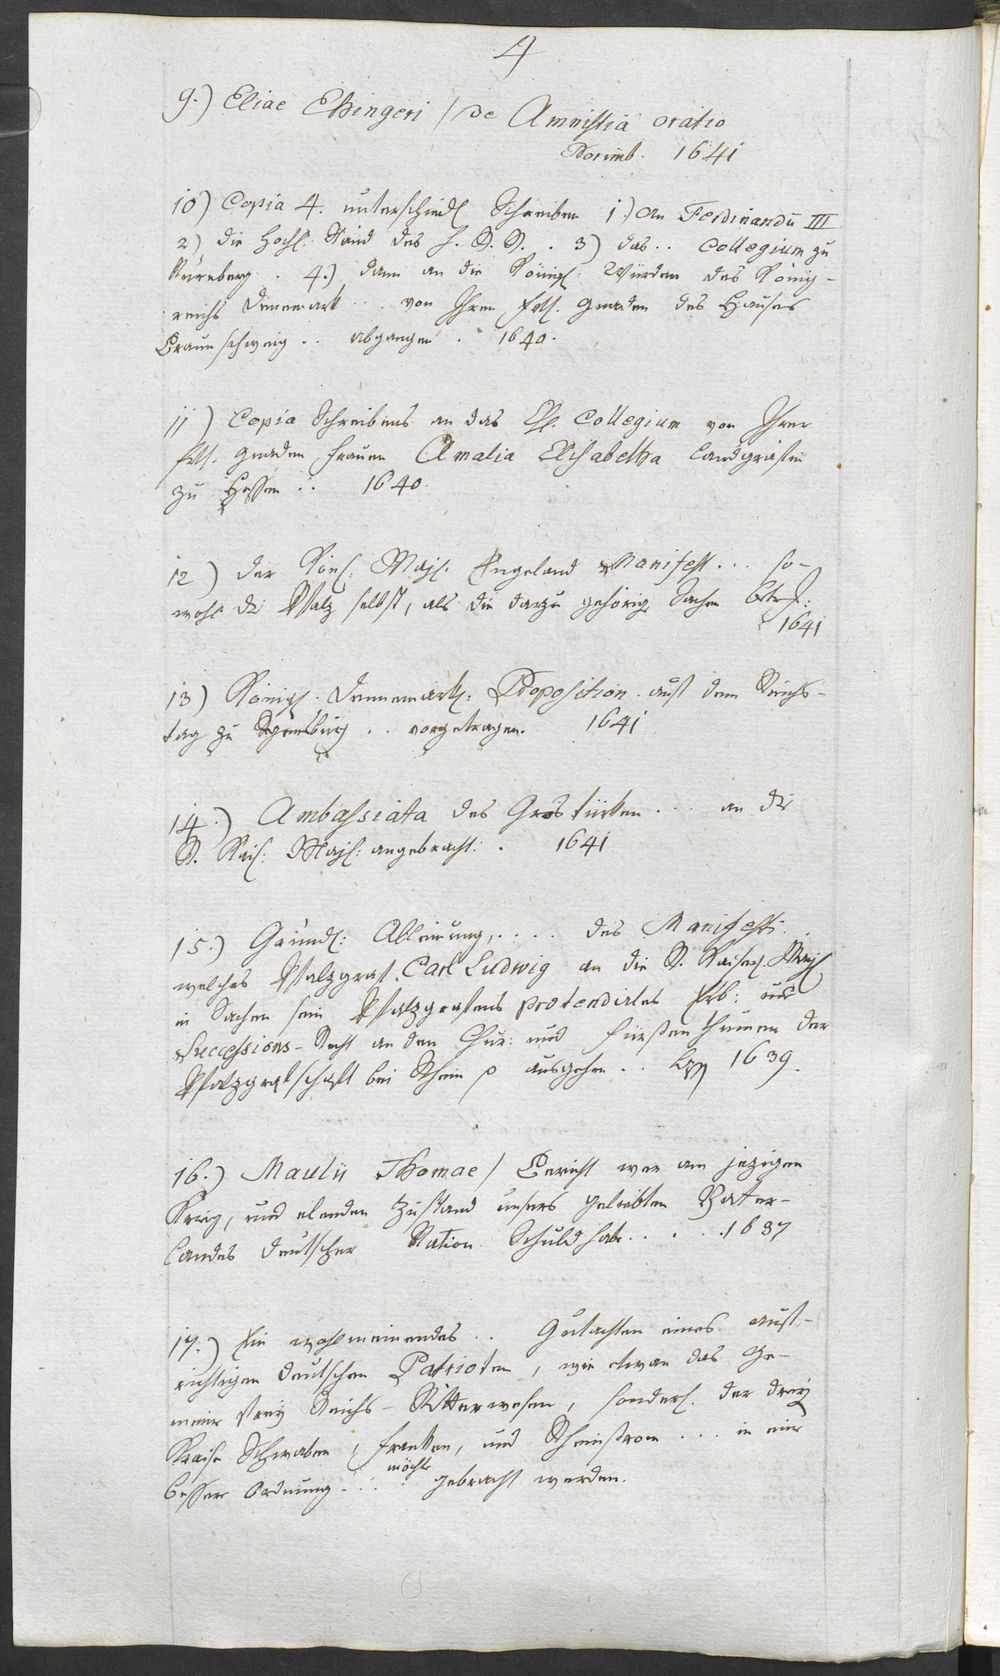 4
9.) Eliae Ehingeri / de Amnistia oratio
Norimb. 1641
10) Copia 4. unterschiedl. Schreiben 1.) an Ferdinandū III
2) die Hochl. Ständ des H. R. R. . 3) das .. Collegium zu
Nürnberg . 4.) dann an die Königl: Würden des König-
reichs Dennemark .. von Ihren frstl. Gnaden des Hauses
Braunschweig .. abgangen . 1640.
11) Copia Schreibens an das Collegium von Ihrer
frstl. Gnaden Frauen Amalia Elisabetha Landgräfin
zu Hessen .. 1640.
12) Der Kön. Maj. Engeland Manifest ... so-
wohl die Pfalz selbst, als die darzu gehörig Sachen betref:
1641
13) Königl. Dennemark: Proposition auf dem Reichs-
tag zu Regensburg .. vorgetragen. 1641
14.) Ambassiata des Grostürken ... an die
R. Kais: Maj: angebracht: . 1641
15.) Gründl: Ableinung, .... des Manifesti
welches Pfalzgraf Carl Ludwig an die R. Kaiserl. Maj
in Sachen sein Pfalzgrafens protendirtes Erb: und
Successions-Recht an den Chur: und Fürstenthumen der
Pfalzgrafschaft bei Rhein p ausgehen .. 1639.
16.) Maulii Thomae / Bericht wer am jezigen
Krieg, und elenden Zustand unsers geliebten Vater-
landes deutscher Nation Schuld habe .... 1637
17.) Ein wohlmeinendes .. Gutachten eines auf-
richtigen deutschen Patrioten, wie etwan das ge-
meine frey Reichs-Ritterwesen, sonderl. der drey
Kraise Schwaben, Franken, und Rheinstrom ... in eine
bessere Ordnung ... möchte gebracht werden.